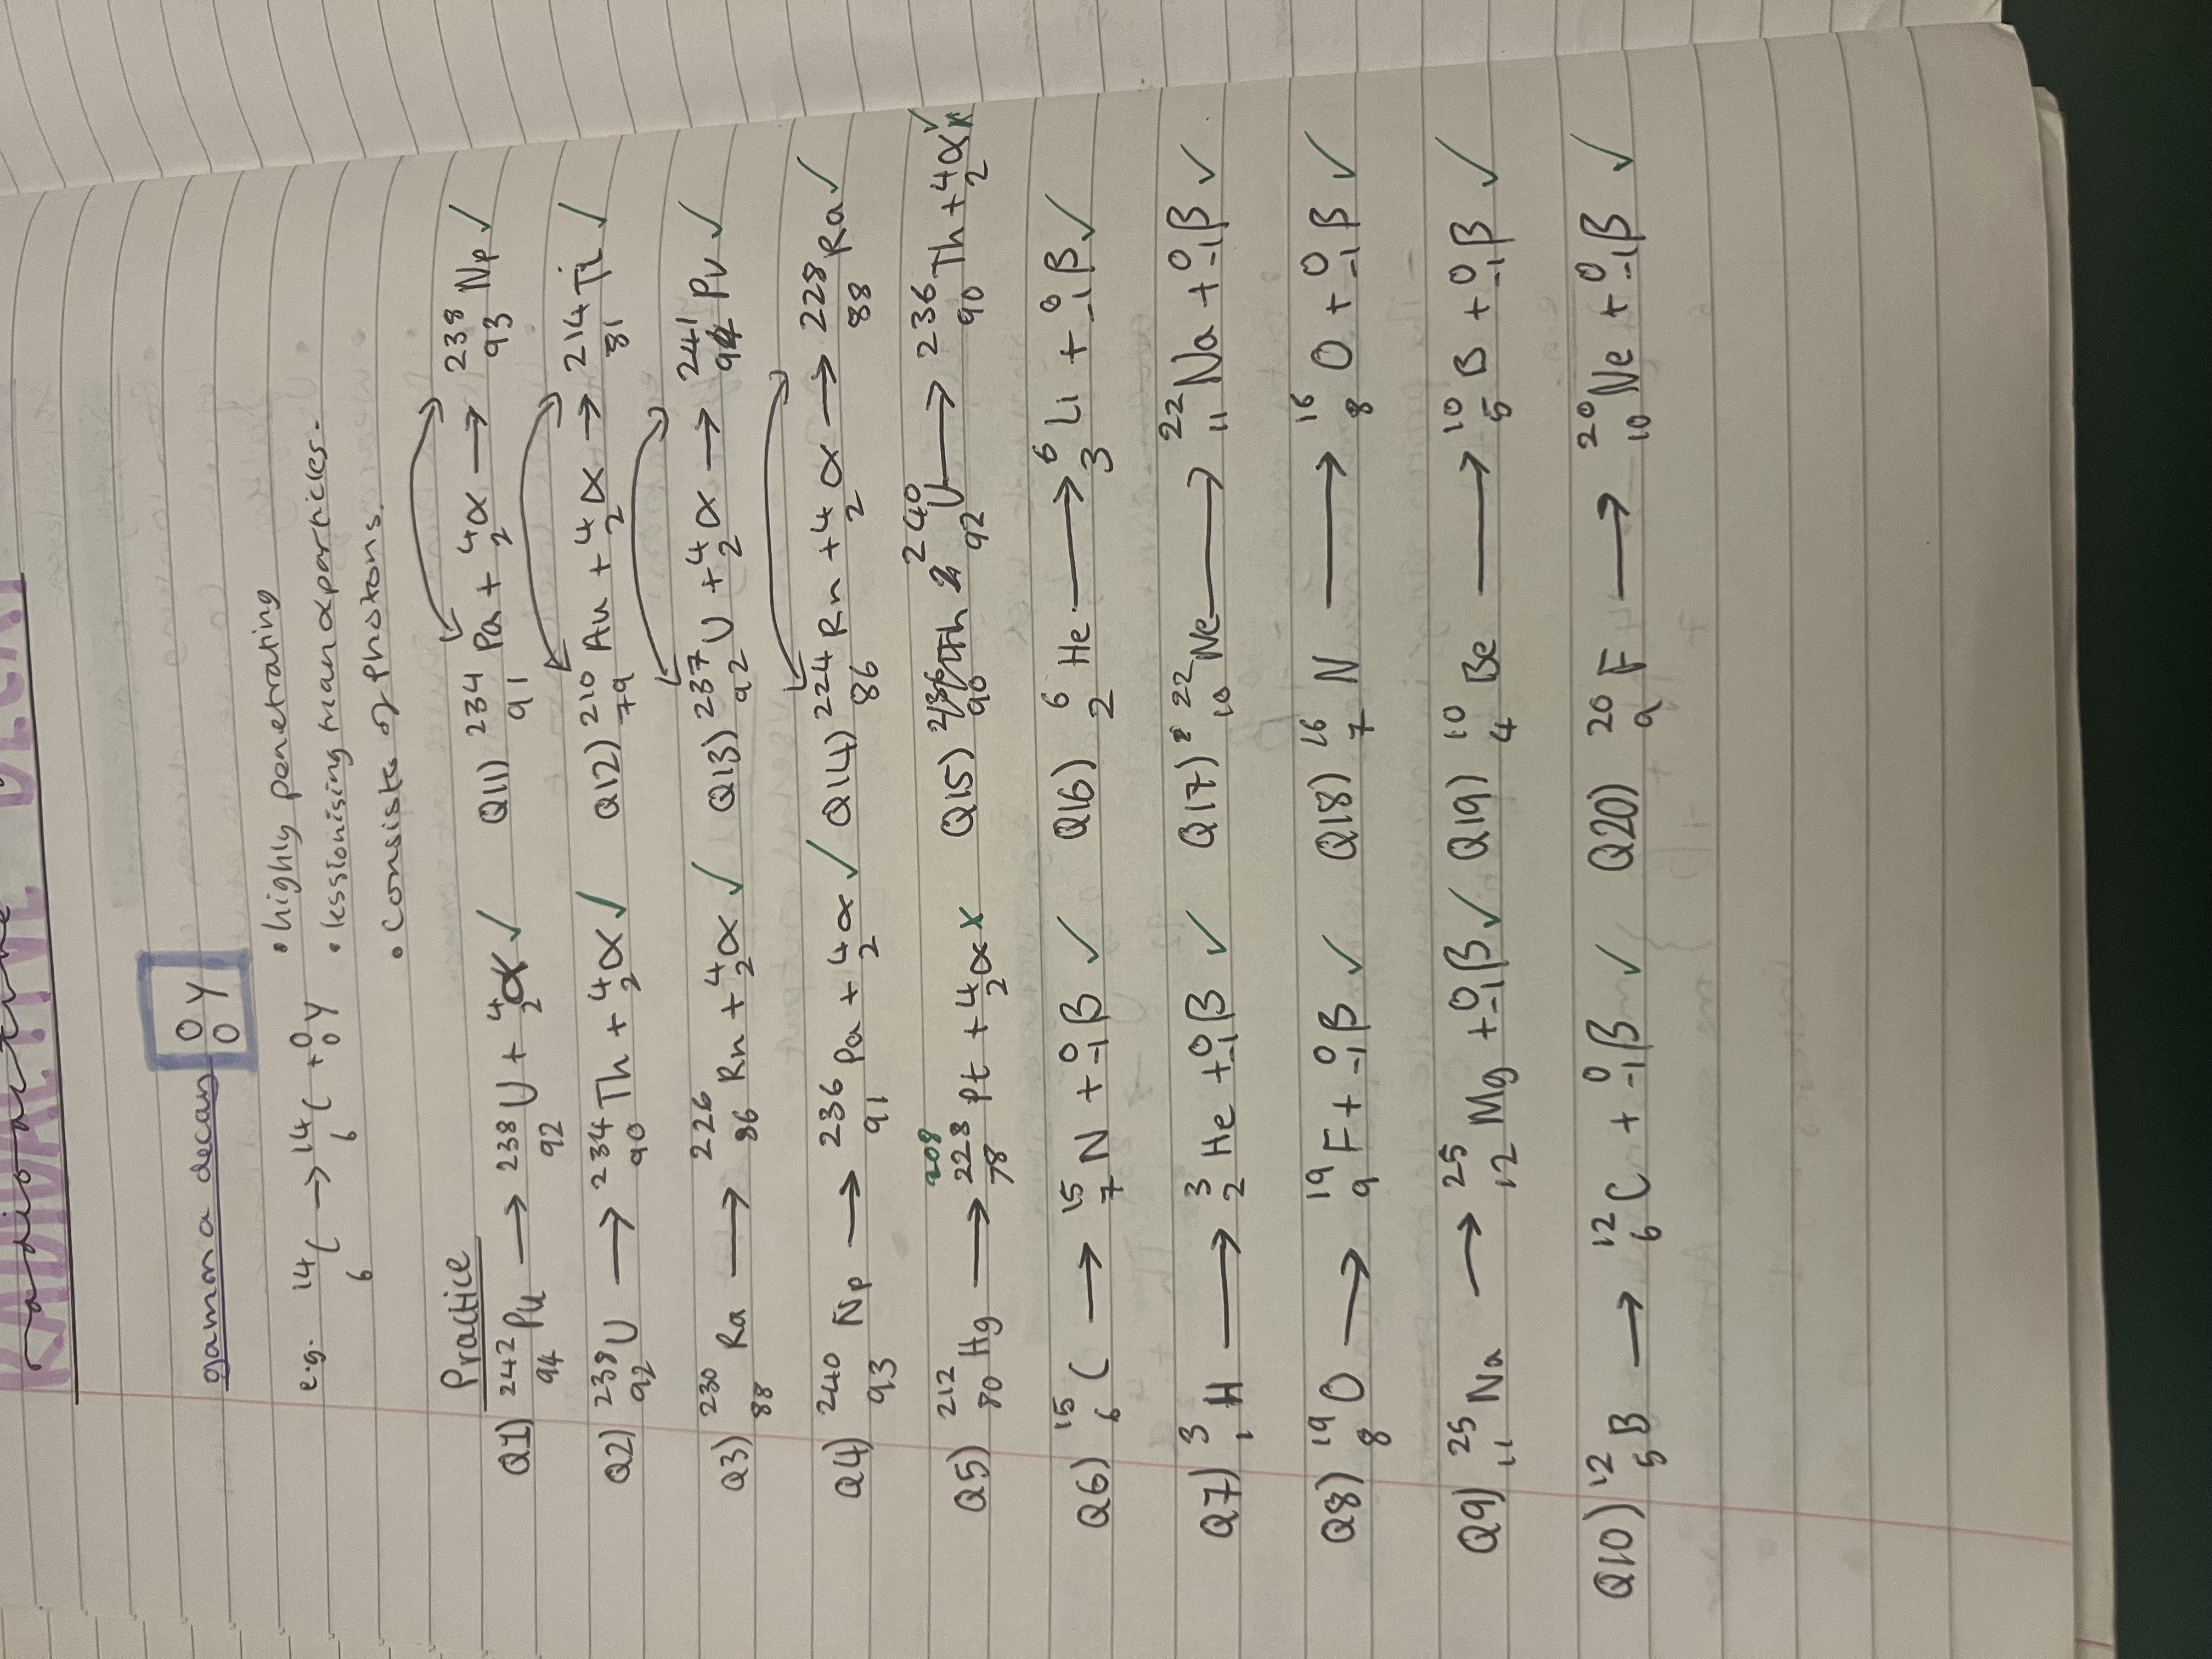 RADIOACTIVE DECAY
radioactive
gamma decay 0 0 γ
e.g. 14 6 C → 14 6 C + 0 0 γ
• highly penetrating
• less ionising than α particles.
• Consists of photons.
Practice
Q1) 242 94 Pu → 238 92 U + 4 2 α ✓
Q2) 238 92 U → 234 90 Th + 4 2 α ✓
Q3) 230 88 Ra → 226 86 Rn + 4 2 α ✓
Q4) 240 93 Np → 236 91 Pa + 4 2 α ✓
Q5) 212 80 Hg → 208 228 78 Pt + 4 2 α x
Q6) 15 6 C → 15 7 N + 0 -1 β ✓
Q7) 3 1 H → 3 2 He + 0 -1 β ✓
Q8) 19 8 O → 19 9 F + 0 -1 β ✓
Q9) 25 11 Na → 25 12 Mg + 0 -1 β ✓
Q10) 12 5 B → 12 6 C + 0 -1 β ✓
Q11) 234 91 Pa + 4 2 α → 238 93 Np ✓
Q12) 210 79 Au + 4 2 α → 214 81 Ti ✓
Q13) 237 92 U + 4 2 α → 241 94 Pu ✓
Q14) 224 86 Rn + 4 2 α → 228 88 Ra ✓
Q15) 236 90 Th 240 92 U → 236 90 Th + 4 2 α ✓ x
Q16) 6 2 He → 6 3 Li + 0 -1 β ✓
Q17) 22 10 Ne → 22 11 Na + 0 -1 β ✓
Q18) 16 7 N → 16 8 O + 0 -1 β ✓
Q19) 10 4 Be → 10 5 B + 0 -1 β ✓
Q20) 20 9 F → 20 10 Ne + 0 -1 β ✓